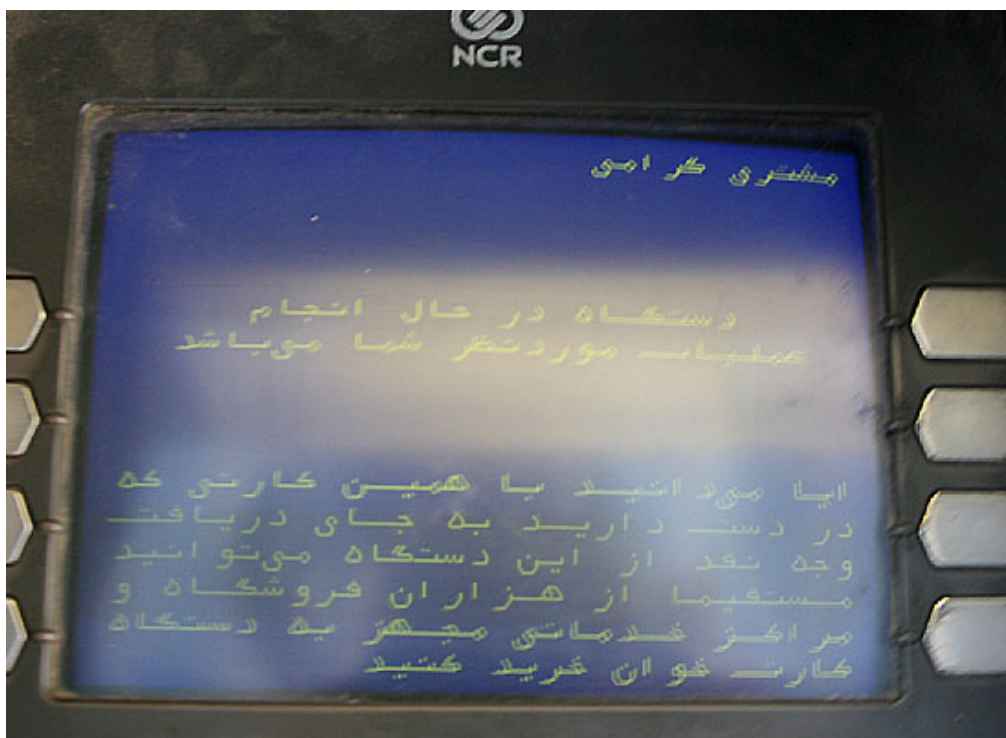 NCR
مشتری گرامی
دستگاه در حال انجام
عملیات موردنظر شما می‌باشد
ایا می‌دانید با همین کارتی که
در دست دارید به جای دریافت
وجه نقد از این دستگاه می‌توانید
مستقیما از هزاران فروشگاه و
مراکز خدماتی مجهز به دستگاه
کارت خوان خرید کنید